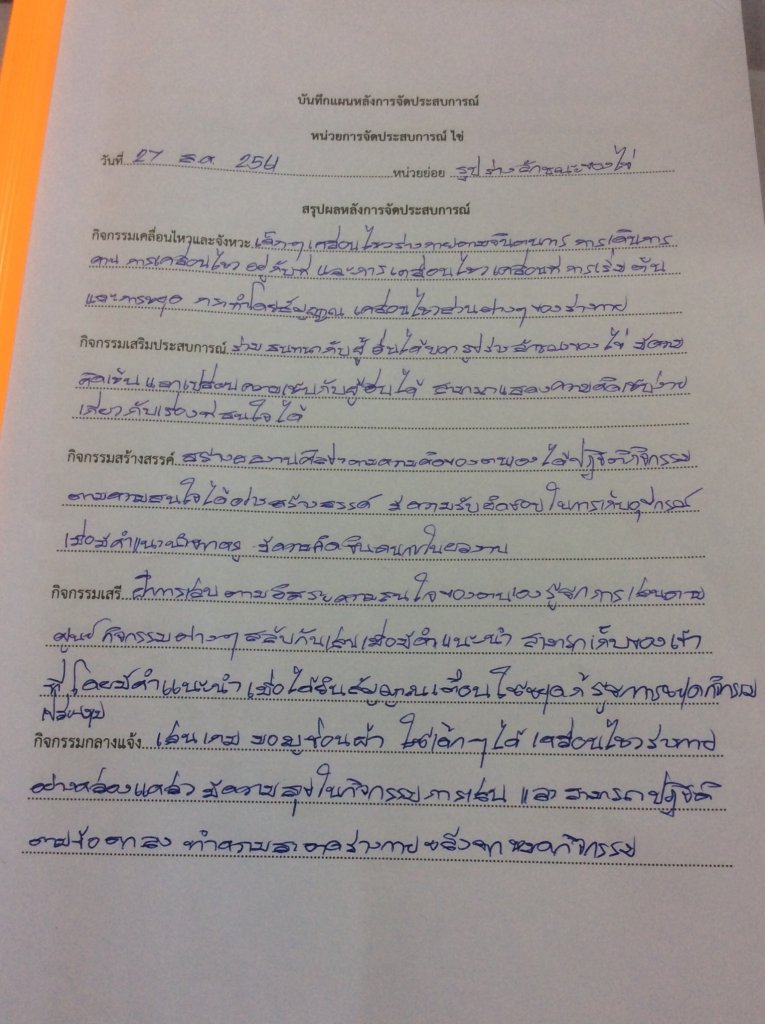 บันทึกแผนหลังการจัดประสบการณ์
หน่วยการจัดประสบการณ์ ไข่
วันที่ 27 ธ.ค. 254 หน่วยย่อย รูปร่างลักษณะของไข่
สรุปผลหลังการจัดประสบการณ์
กิจกรรมเคลื่อนไหวและจังหวะ เด็กๆ เคลื่อนไหวร่างกายตามจินตนาการ การเดินการ
คาน การเคลื่อนไหว อยู่กับที่ และการเคลื่อนไหวเคลื่อนที่ การเริ่มต้น
และการหยุด สัญญาณ เคลื่อนไหวส่วนต่างๆของร่างกาย
กิจกรรมเสริมประสบการณ์ ร่วมสนทนากับผู้อื่นได้ รูปร่างลักษณะของไข่ มีความ
คิดเห็น แลกเปลี่ยนความเห็นกับผู้อื่นได้ สามารถแสดงความคิดเห็นง่าย
เกี่ยวกับเรื่องที่สนใจได้
กิจกรรมสร้างสรรค์ สร้างผลงานศิลปะตามความคิดของตนเอง ได้ปฏิบัติกิจกรรม
ตามความสนใจได้อย่างสร้างสรรค์ มีความรับผิดชอบในการเก็บอุปกรณ์
เมื่อมีคำแนะนำจากครู มีความคิดจินตนาการในผลงาน
กิจกรรมเสรี มีการเล่นตามอิสระความสนใจของตนเอง รู้จักการเล่นตาม
ศูนย์กิจกรรมต่างๆ สลับกันเล่นเมื่อมีคำแนะนำ สามารถเก็บของเข้า
ที่ โดยมีคำแนะนำ เมื่อได้ยินสัญญาณเตือนให้หยุด ก็รู้จักการหยุดกิจกรรม
กิจกรรมกลางแจ้ง เล่นเกม มอญซ่อนผ้า ให้เด็กๆได้ เคลื่อนไหวร่างกาย
อย่างคล่องแคล่ว มีความสุขในกิจกรรมการเล่น และสามารถปฏิบัติ
ตามข้อตกลง ทำความสะอาดร่างกายหลังจากหมดกิจกรรม